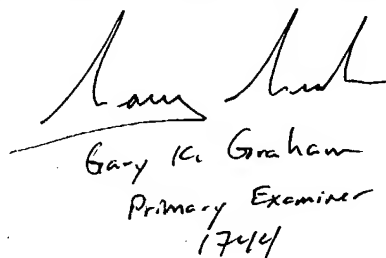 Gary K. Graham
Primary Examiner
1744